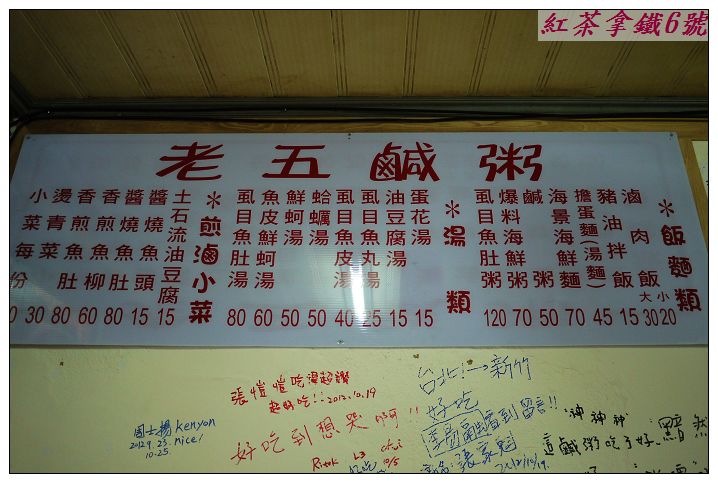 紅茶拿鐵6號
老五鹹粥
＊飯麵類
滷肉飯 大30 小20
豬油拌飯 15
擔蛋麵(湯麵) 45
海景海鮮麵 70
鹹海鮮粥 50
爆料海鮮粥 70
虱目魚肚粥 120
＊湯類
蛋花湯 15
油豆腐湯 15
虱目魚丸湯 25
虱目魚皮湯 40
蛤蠣湯 50
鮮蚵湯 50
魚皮鮮蚵湯 60
虱目魚肚湯 80
＊煎滷小菜
土石流油豆腐 15
醬燒魚頭 15
醬燒魚肚 80
香煎魚柳 60
香煎魚肚 80
燙青菜 30
小菜每份
張愷愷吃湯超讚
超好吃!! 2012.10.19
好吃到想哭啊!!
台北!→新竹
好吃
留言!!
kenyon
nice!
10.25.
2012/10/19.
神神神
這鹹粥吃了好
黯然